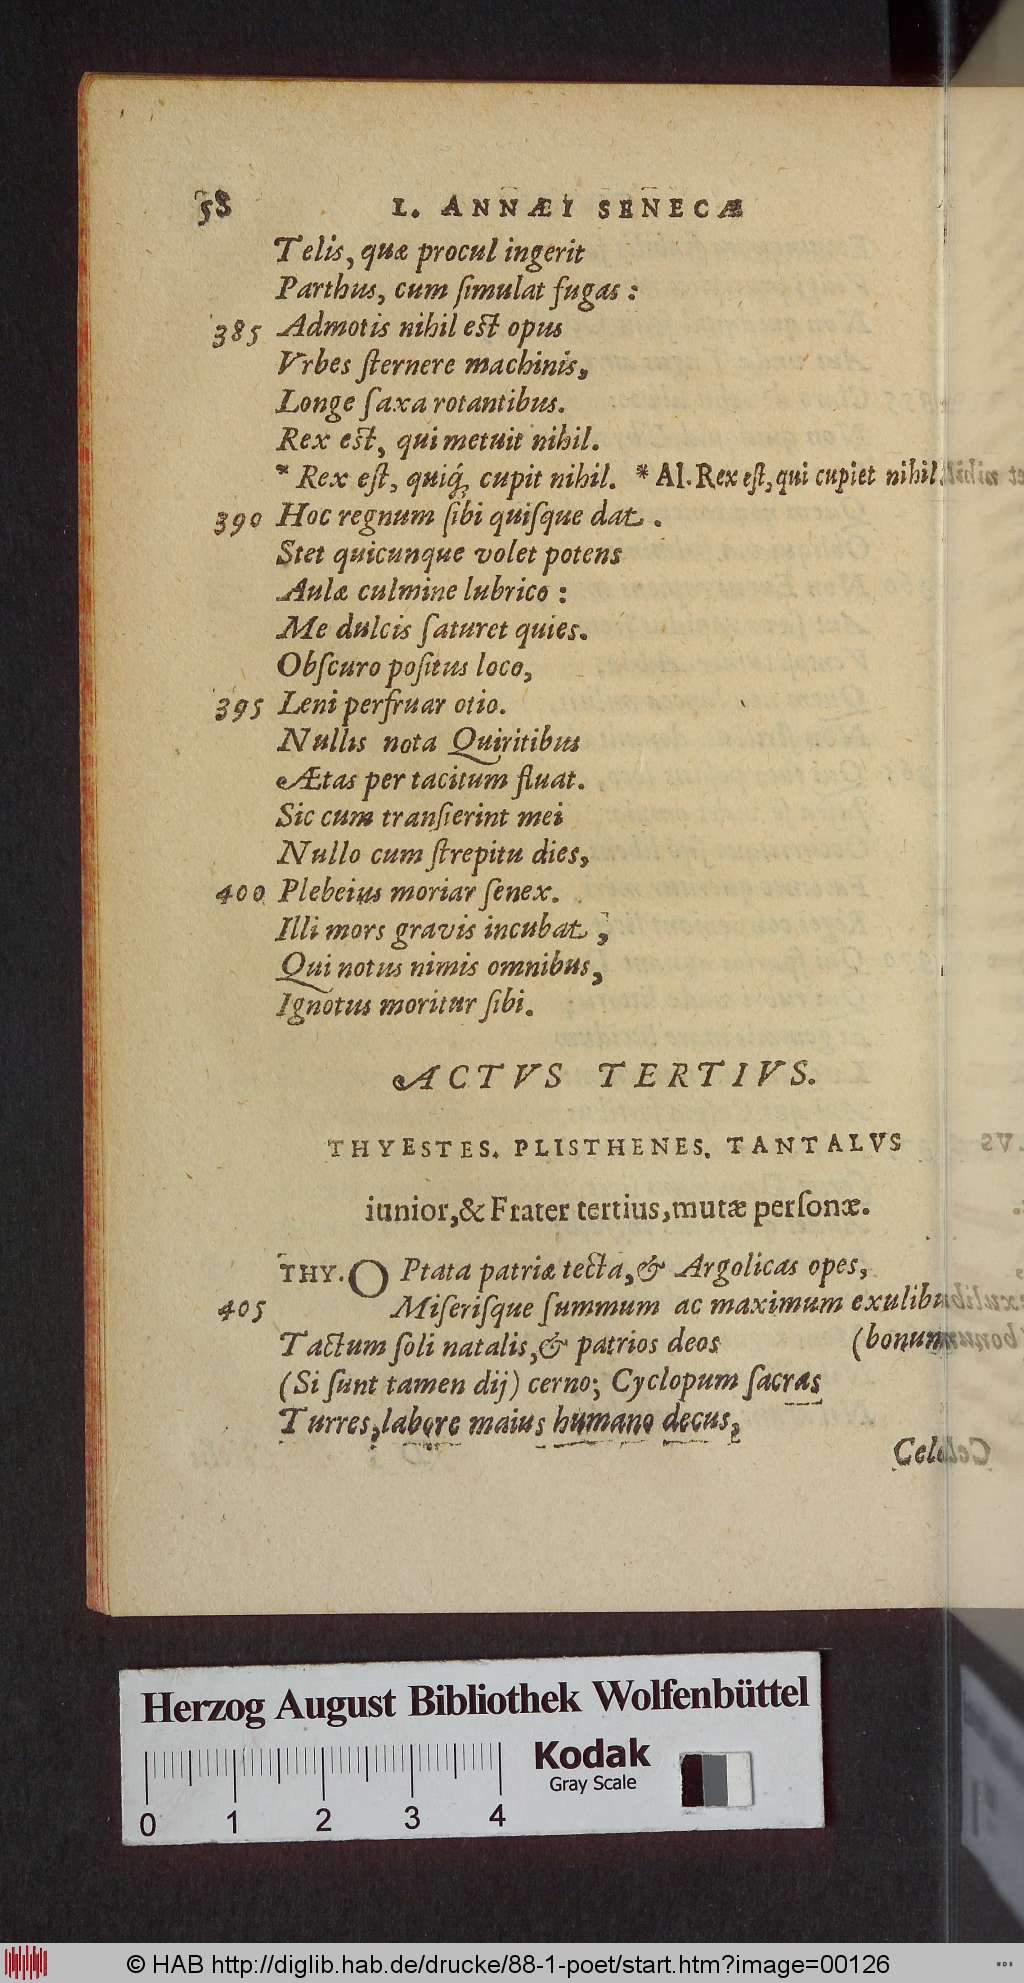 58 L. ANNÆI SENECÆ
Telis, quæ procul ingerit
Parthus, cum ſimulat fugas :
385 Admotis nihil est opus
Vrbes ſternere machinis,
Longe ſaxa rotantibus.
Rex est, qui metuit nihil.
* Rex eſt, quiq́, cupit nihil. * Al. Rex eſt, qui cupiet nihil.
390 Hoc regnum ſibi quiſque dat .
Stet quicunque volet potens
Aulæ culmine lubrico :
Me dulcis ſaturet quies.
Obſcuro poſitus loco,
395 Leni perfruar otio.
Nullis nota Quiritibus
Ætas per tacitum fluat.
Sic cum tranſierint mei
Nullo cum ſtrepitu dies,
400 Plebeius moriar ſenex.
Illi mors gravis incubat ,
Qui notus nimis omnibus,
Ignotus moritur ſibi.
ACTVS TERTIVS.
THYESTES. PLISTHENES. TANTALVS
iunior,& Frater tertius,mutæ perſonæ.
THY. OPtata patriæ tecta,& Argolicas opes,
405 Miſeriſque ſummum ac maximum exulibu
Tactum ſoli natalis,& patrios deos (bonum
(Si ſunt tamen dij) cerno; Cyclopum ſacras
Turres,labore maius humano decus,
Cel
Herzog August Bibliothek Wolfenbüttel
Kodak
Gray Scale
0 1 2 3 4
© HAB http://diglib.hab.de/drucke/88-1-poet/start.htm?image=00126